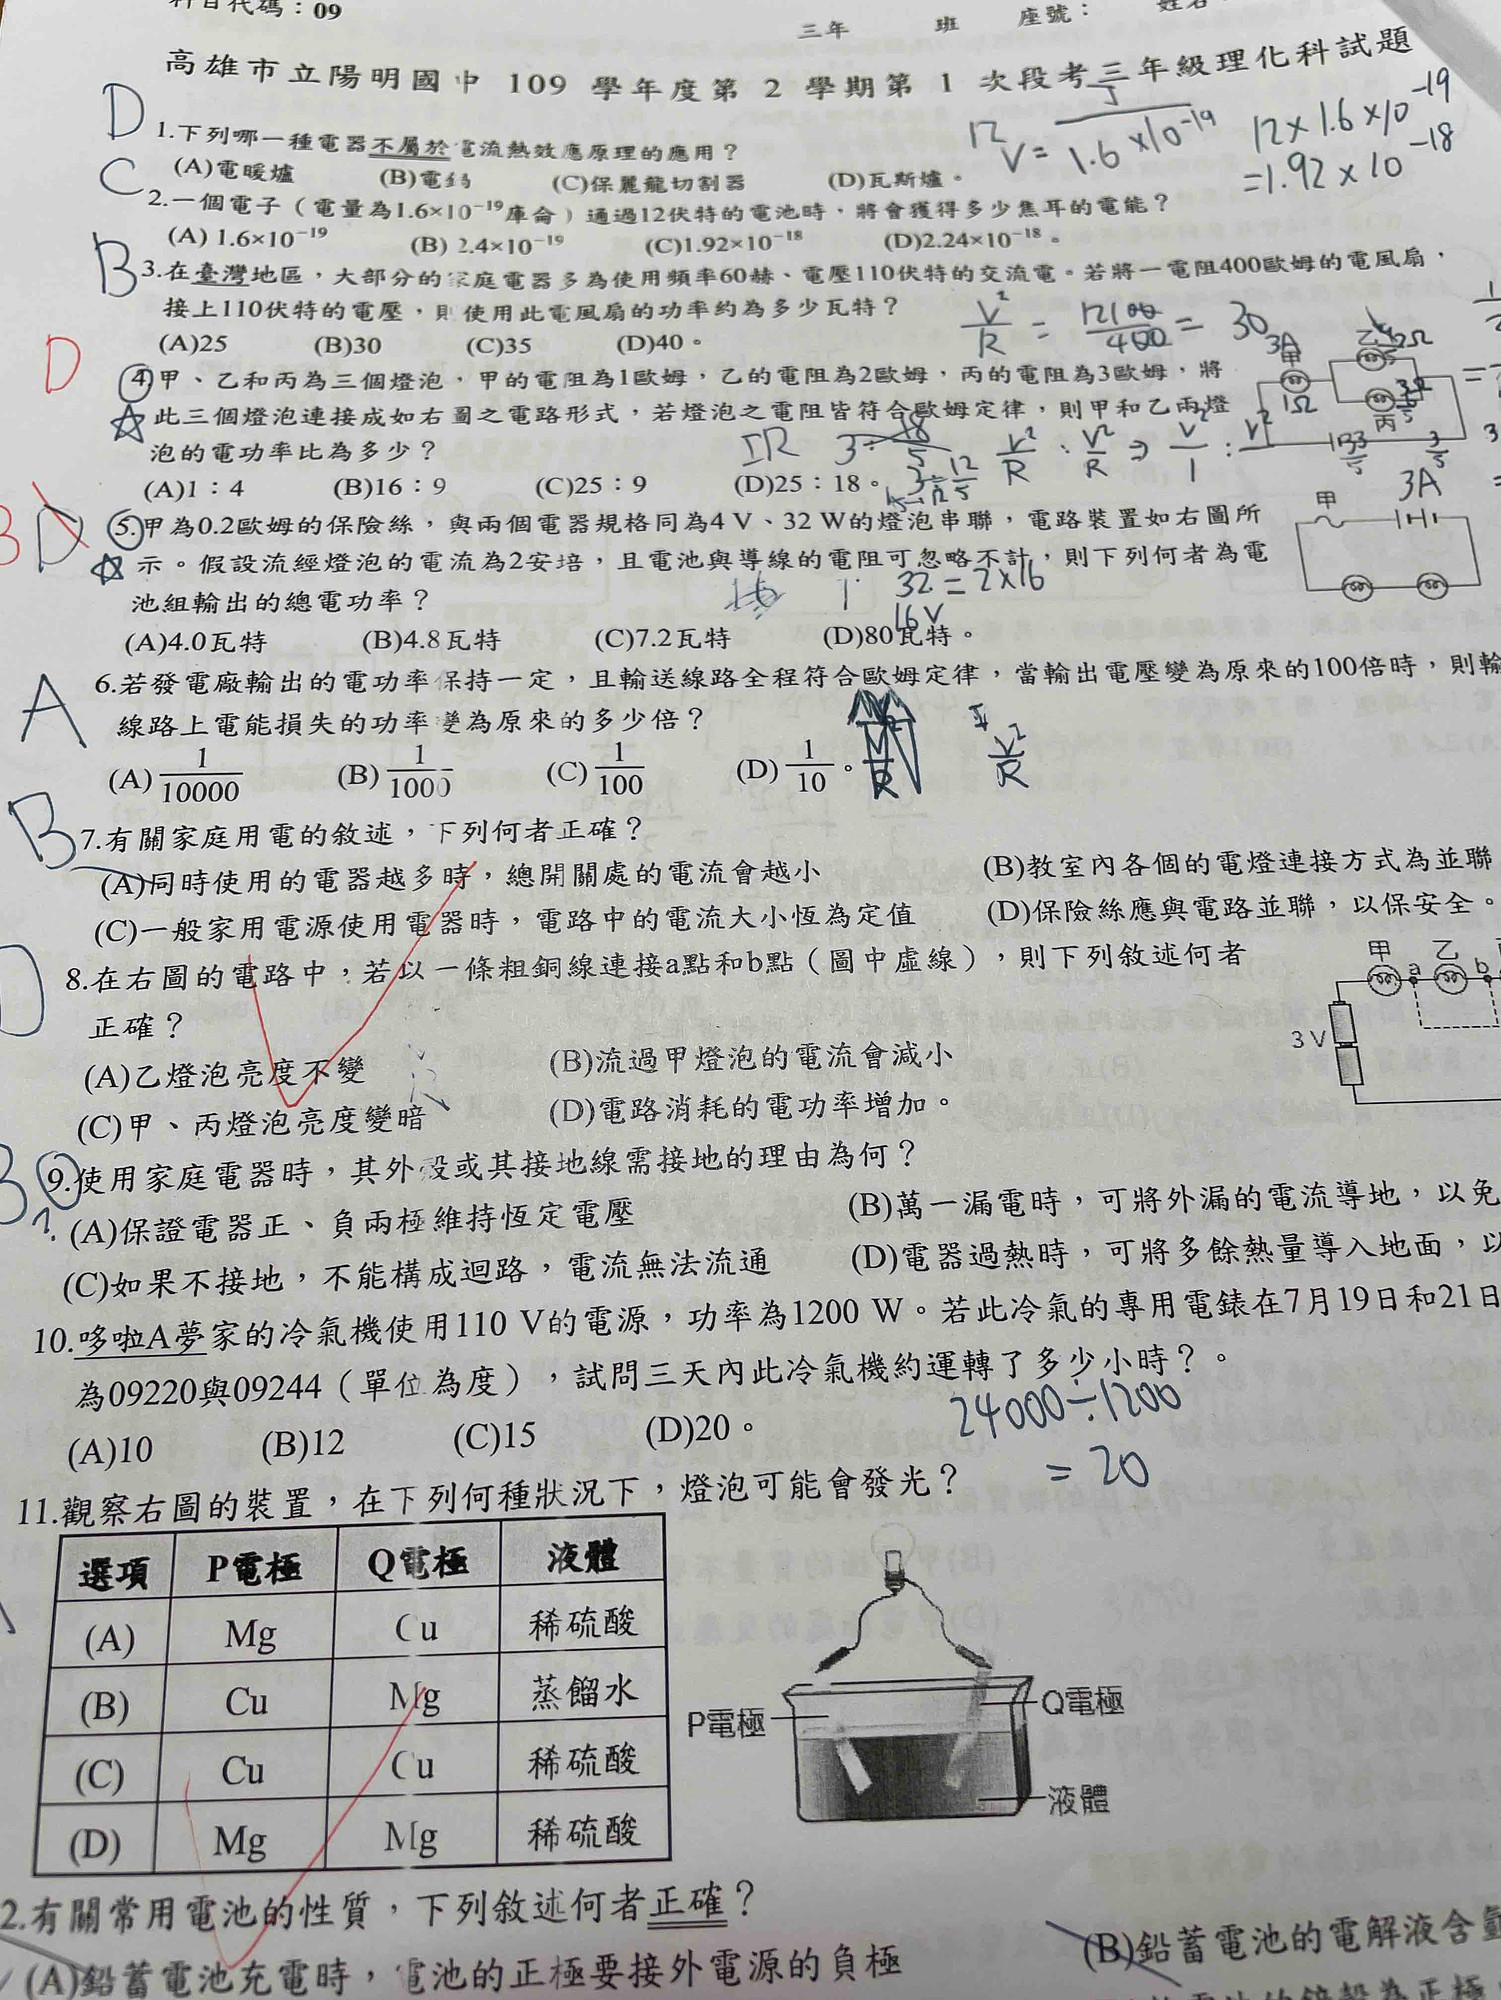 科目代碼：09
三年 班 座號： 姓名
高雄市立陽明國中 109 學年度第 2 學期第 1 次段考三年級理化科試題
D
1.下列哪一種電器不屬於電流熱效應原理的應用？
(A)電暖爐 (B)電鍋 (C)保麗龍切割器 (D)瓦斯爐。
12 V = J / 1.6×10⁻¹⁹
12×1.6×10⁻¹⁹
=1.92×10⁻¹⁸
C
2.一個電子（電量為1.6×10⁻¹⁹庫侖）通過12伏特的電池時，將會獲得多少焦耳的電能？
(A) 1.6×10⁻¹⁹ (B) 2.4×10⁻¹⁹ (C)1.92×10⁻¹⁸ (D)2.24×10⁻¹⁸。
B
3.在臺灣地區，大部分的家庭電器多為使用頻率60赫、電壓110伏特的交流電。若將一電阻400歐姆的電風扇，
接上110伏特的電壓，則使用此電風扇的功率約為多少瓦特？
(A)25 (B)30 (C)35 (D)40。
V²/R = 12100/400 = 30
D
4.甲、乙和丙為三個燈泡，甲的電阻為1歐姆，乙的電阻為2歐姆，丙的電阻為3歐姆，將
此三個燈泡連接成如右圖之電路形式，若燈泡之電阻皆符合歐姆定律，則甲和乙兩燈
泡的電功率比為多少？
(A)1：4 (B)16：9 (C)25：9 (D)25：18。
3A 甲 1Ω
乙 2Ω
丙 3Ω
IR
V²/R : V²/R ⇒ V²/1 : V²
3A
B D
5.甲為0.2歐姆的保險絲，與兩個電器規格同為4 V、32 W的燈泡串聯，電路裝置如右圖所
示。假設流經燈泡的電流為2安培，且電池與導線的電阻可忽略不計，則下列何者為電
池組輸出的總電功率？
(A)4.0瓦特 (B)4.8瓦特 (C)7.2瓦特 (D)80瓦特。
甲
32=2×16
16V
A
6.若發電廠輸出的電功率保持一定，且輸送線路全程符合歐姆定律，當輸出電壓變為原來的100倍時，則輸
線路上電能損失的功率變為原來的多少倍？
(A) 1/10000 (B) 1/1000 (C) 1/100 (D) 1/10。
V²/R
B
7.有關家庭用電的敘述，下列何者正確？
(A)同時使用的電器越多時，總開關處的電流會越小 (B)教室內各個的電燈連接方式為並聯
(C)一般家用電源使用電器時，電路中的電流大小恆為定值 (D)保險絲應與電路並聯，以保安全。
D
8.在右圖的電路中，若以一條粗銅線連接a點和b點（圖中虛線），則下列敘述何者
正確？
(A)乙燈泡亮度不變 (B)流過甲燈泡的電流會減小
(C)甲、丙燈泡亮度變暗 (D)電路消耗的電功率增加。
甲 a 乙 b
3 V
B
9.使用家庭電器時，其外殼或其接地線需接地的理由為何？
?
(A)保證電器正、負兩極維持恆定電壓 (B)萬一漏電時，可將外漏的電流導地，以免
(C)如果不接地，不能構成迴路，電流無法流通 (D)電器過熱時，可將多餘熱量導入地面，以
10.哆啦A夢家的冷氣機使用110 V的電源，功率為1200 W。若此冷氣的專用電錶在7月19日和21日
為09220與09244（單位為度），試問三天內此冷氣機約運轉了多少小時？。
(A)10 (B)12 (C)15 (D)20。
24000÷1200
=20
11.觀察右圖的裝置，在下列何種狀況下，燈泡可能會發光？
選項 P電極 Q電極 液體
(A) Mg Cu 稀硫酸
(B) Cu Mg 蒸餾水
(C) Cu Cu 稀硫酸
(D) Mg Mg 稀硫酸
P電極
Q電極
液體
2.有關常用電池的性質，下列敘述何者正確？
(A)鉛蓄電池充電時，電池的正極要接外電源的負極 (B)鉛蓄電池的電解液含量